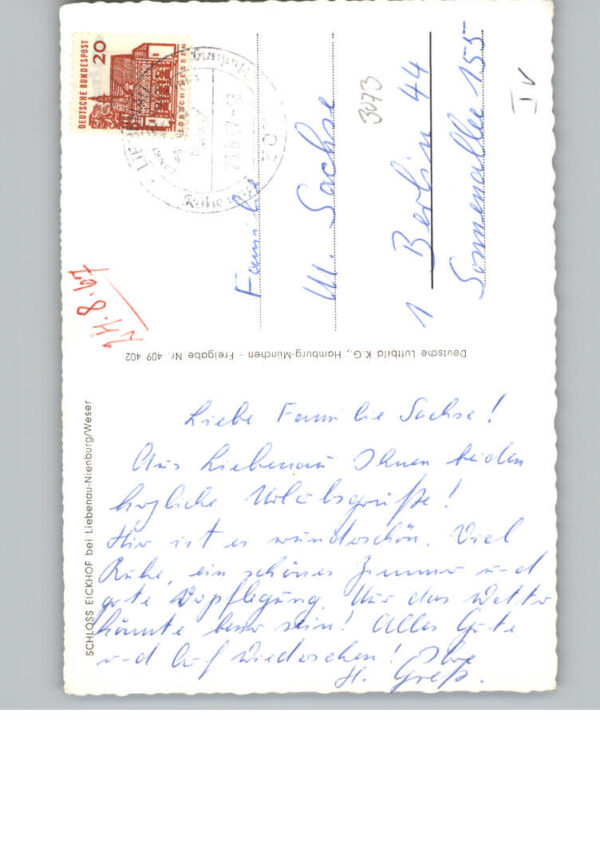 DEUTSCHE BUNDESPOST
20
LORSCH/HESSEN
3073
IV
Familie
M. Sachse
1 Berlin 44
Sonnenallee 155
24.8.67
Deutsche Luftbild K.G., Hamburg-München - Freigabe Nr. 409 402
SCHLOSS EICKHOF bei Liebenau-Nienburg/Weser
Liebe Familie Sachse!
Aus Liebenau Ihnen beiden
herzliche Urlaubsgrüße!
Hier ist es wunderschön. Viel
Ruhe, ein schönes Zimmer und
gute Verpflegung. Nur das Wetter
könnte besser sein! Alles Gute
und Auf Wiedersehen! Ihre
H. Greß.